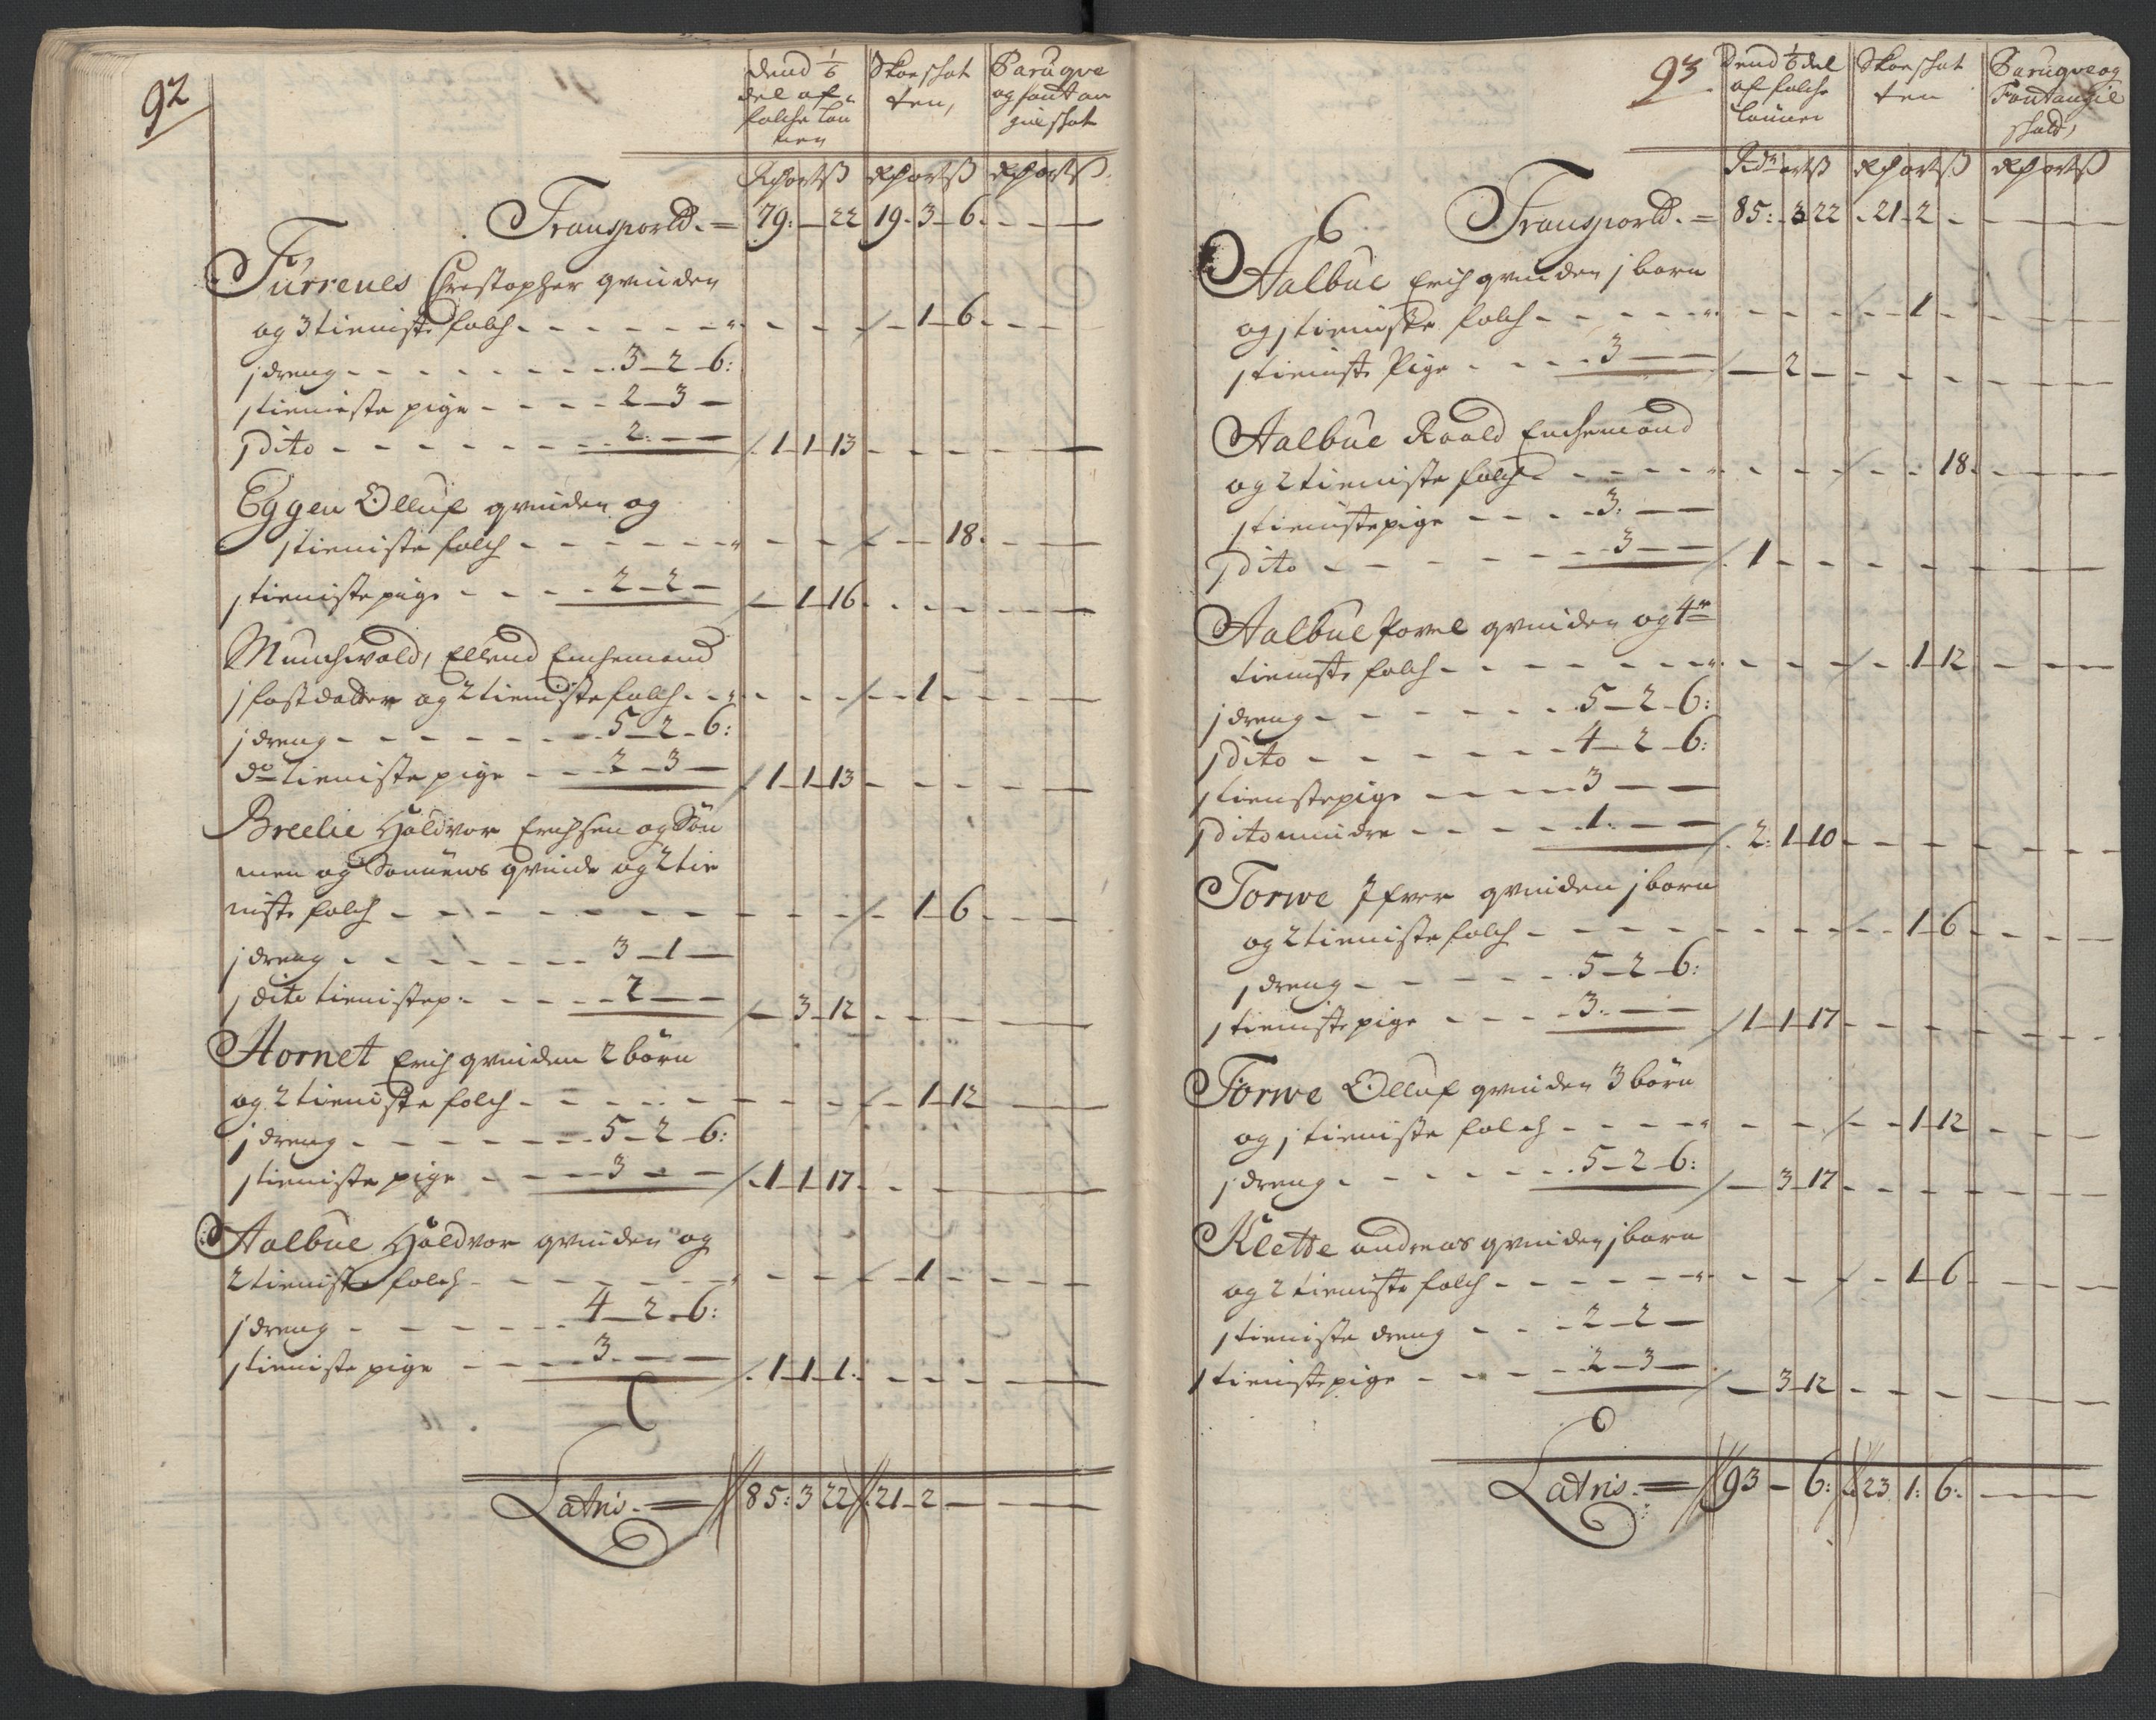 92
Dend 1/6
del af
folcheløn
nen
Skoeschat
ten,
Paruqve
og fontan
gieschat
Rhortß Rhortß Rhortß
Transporld.= 79: — 22 19. 3 - 6. - - —
Furrenes Christopher qvinden
og 3 tieniste folch - - - - - - - 1 - 6. - -
j dreng - - - - - - 3 - 2 - 6:
j tieniste pige - - - - 2 - 3 —
j dito - - - - - - 2: — — 1 - 1 - 13 - - - -
Eggen Olluf qvinden og
j tieniste folch - - - - - - - 18. - -
j tieniste pige - - - - 2 - 2 — — 1 - 16 - - - -
Munchvold, Ellend Enchemand
j fosterdatter og 2 tieniste folch - - - - 1 - - -
j dreng - - - - - - 5 - 2 - 6:
do tieniste pige - - 2 - 3 — 1 - 1 - 13 - - - -
Breelie Haldvor Erichsen og Søn
nen og Sønnens qvinde og 2 tie
niste folch - - - - - - - 1 - 6 - - -
j dreng - - - - - - 3 - 1 —
j dito tienistep: - - - - 2 — — — 3 - 12 - - - -
Hornet Erich qvinden 2 børn
og 2 tieniste folch - - - - - - - 1 - 12 — —
j dreng - - - - - - 5 - 2 - 6:
j tieniste pige - - - 3 - — 1 - 1 - 17 - - — —
Aalbue Haldvor qvinden og
2 tieniste folch - - - - - - - 1 - - - -
j dreng - - - - - 4 - 2 - 6:
j tieniste pige - - - 3. — — 1 - 1 - 1. - - - -
Latris.= 85: 3 22 21 - 2 — — —
93
Dend 1/6 del
af folche
lønnen
Skoeschat
ten
Paruqve og
Fontangie
schatt,
Rdr ortß Rhortß Rhortß
6
Transporld.= 85: - 3 22 - 21 - 2 - - — —
Aalbue Erich qvinden j barn
og j tieniste folch - - - - - - - 1 - - - -
j tieniste Pige - - - - 3 — — — 2 - - - -
Aalbue Roald Enchemand
og 2 tieniste folch - - - - - - - 18. - - -
j tieniste pige - - - - 3: — —
j dito - - - - - - 3 — — 1 - - - - -
Aalbue Povel qvinden og 4re
tieniste folch - - - - - - - 1 - 12 - - -
j dreng - - - - - - 5 - 2 - 6:
j dito - - - - - - 4 - 2 - 6:
j tienstepige - - - - 3 — —
j dito mindre - - - - - 1: — — 2: 1 - 10 - - - -
Torwe Ifver qvinden j barn
og 2 tieniste folch - - - - - - - 1 - 6 - - -
j dreng - - - - - 5 - 2 - 6:
j tieniste pige - - - - 3: — — 1 - 1 - 17 - - - -
Torwe Olluf qvinden 3 børn
og j tieniste folch - - - - - - - 1 - 12 - - -
j dreng - - - - - - 5 - 2 - 6: — 3 - 17 - - - -
Klette andreas qvinden j barn
og 2 tieniste folch - - - - - - - 1 - 6 - - -
j tieniste dreng - - - 2 - 2 —
j tieniste pige - - - - 2 - 3 — — 3 - 12 - - - -
Latris.= 93 - 6: 23 1: 6: — — —